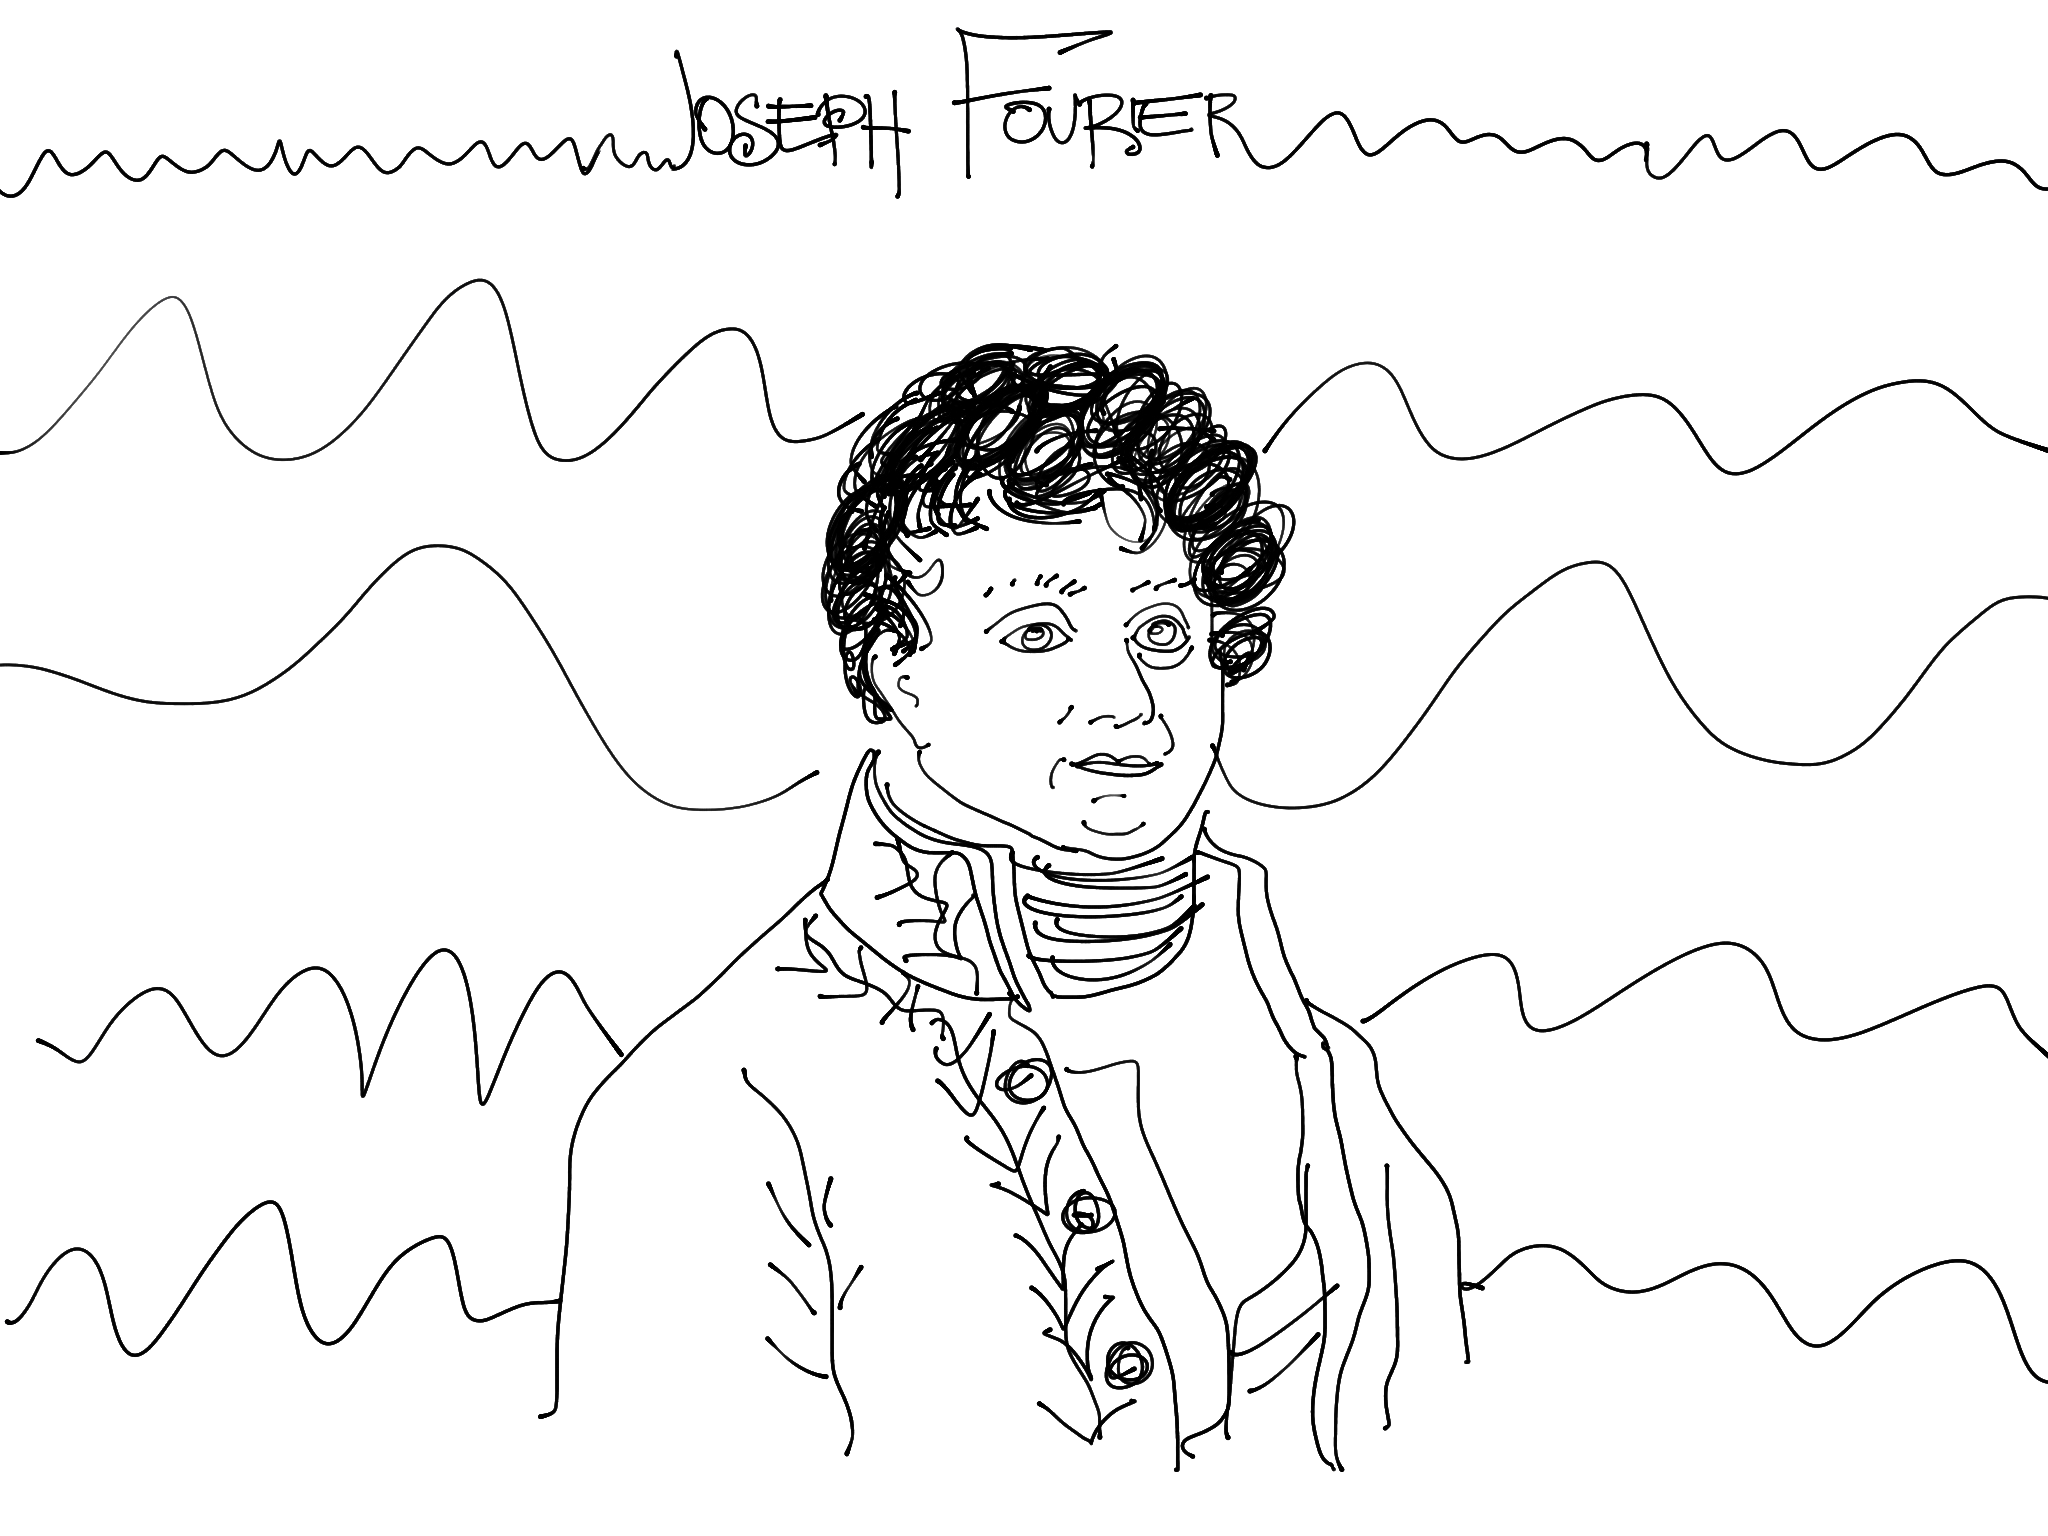 JOSEPH FOURIER